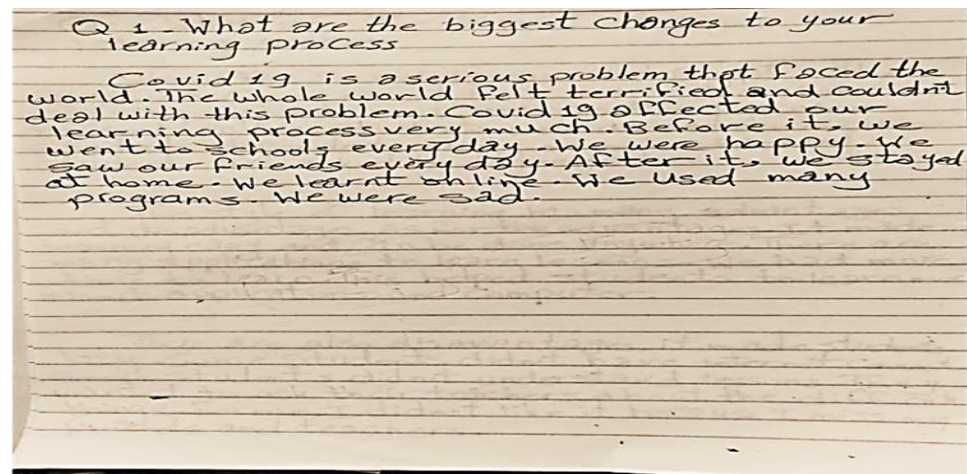 Q 1 - What are the biggest changes to your
learning process
Covid 19 is a serious problem that faced the
world. The whole world felt terrified and couldn't
deal with this problem. Covid 19 affected our
learning process very much. Before it, we
went to schools every day. We were happy. We
saw our friends every day. After it, we stayed
at home. We learnt online. We used many
programs. We were sad.